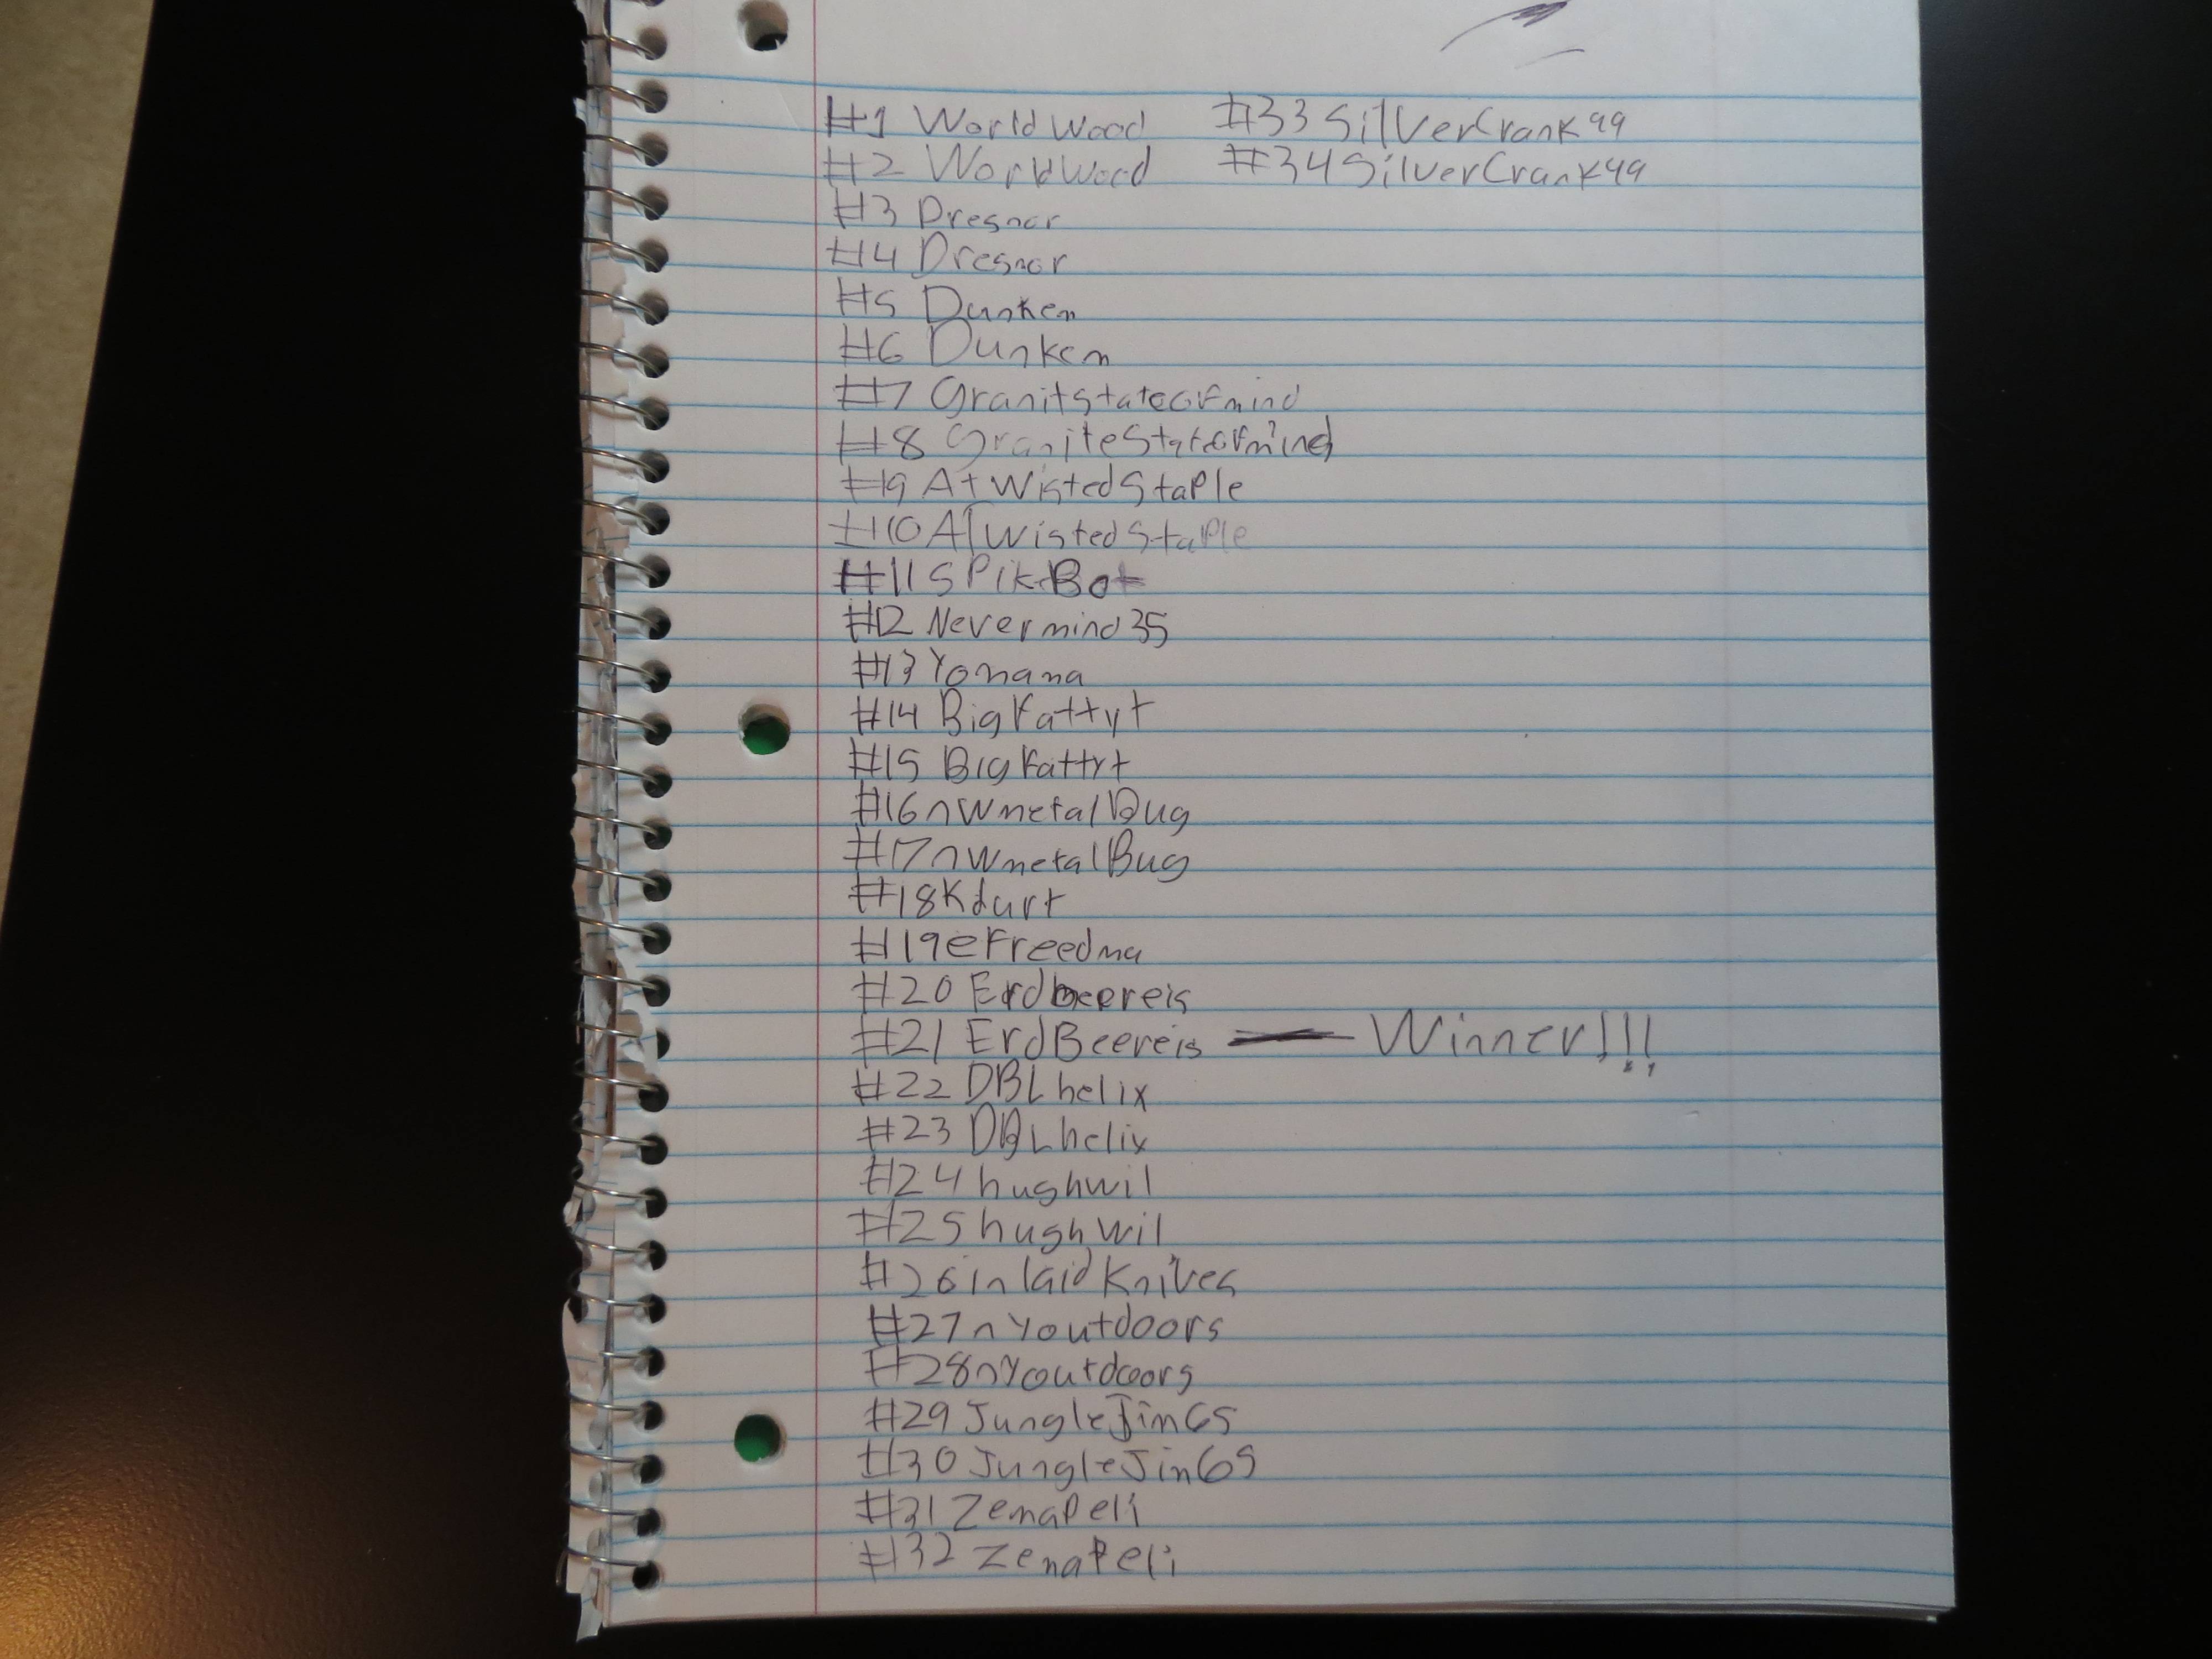 #1 WorldWood
#2 WorldWood
#3 Dresnor
#4 Dresnor
#5 Dunken
#6 Dunken
#7 Granitstateofmind
#8 GraniteStateofmind
#9 AtwistedStaple
#10 ATwistedStaple
#11 SpikeBot
#12 Nevermind35
#13 Yonana
#14 BigFattyt
#15 BigFattyt
#16 nwmetalBug
#17 nwmetalBug
#18 Kdurt
#19 eFreedma
#20 Erdbeereis
#21 ErdBeereis — Winner!!!
#22 DBLhelix
#23 DBLhelix
#24 hughwil
#25 hughwil
#26 inlaidKnives
#27 nyoutdoors
#28 nyoutdoors
#29 JungleJim65
#30 JungleJim65
#31 Zenapeli
#32 ZenaPeli
#33 SilverCrank99
#34 SilverCrank99